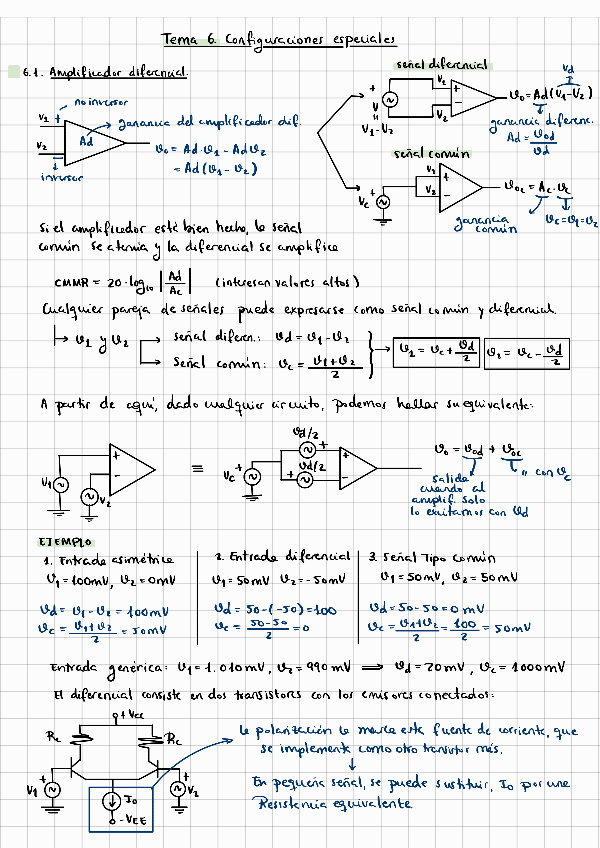 Tema 6. Configuraciones especiales
6.1. Amplificador diferencial.
no inversor
V1 +
V2 -
Ad
inversor
ganancia del amplificador dif.
vo = Ad·v1 - Ad v2
= Ad(v1 - v2)
señal diferencial
+
V
-
V1-V2
V1 +
V2 -
vo = Ad(v1-v2)
Vd
ganancia diferenc.
Ad = vod/vd
señal común
Vc +
V1 +
V2 -
voc = Ac·vc
ganancia común
vc=v1=v2
Si el amplificador está bien hecho, la señal
común se atenúa y la diferencial se amplifica
CMMR = 20·log10 |Ad/Ac| (interesan valores altos)
Cualquier pareja de señales puede expresarse como señal común y diferencial.
v1 y v2
señal diferen.: vd = v1-v2
señal común: vc = (v1+v2)/2
v1 = vc + vd/2
v2 = vc - vd/2
A partir de aquí, dado cualquier circuito, podemos hallar su equivalente:
V1
V2
+
-
≡
Vc +
vd/2
vd/2
+
-
vo = vod + voc
salida
cuando al
amplif. solo
lo excitamos con vd
" con vc
EJEMPLO
1. Entrada asimétrica
v1 = 100mV, v2 = 0mV
vd = v1-v2 = 100mV
vc = (v1+v2)/2 = 50mV
2. Entrada diferencial
v1 = 50mV v2 = -50mV
vd = 50-(-50)=100
vc = (50-50)/2 = 0
3. Señal Tipo Común
v1 = 50mV, v2 = 50mV
vd = 50-50 = 0 mV
vc = (v1+v2)/2 = 100/2 = 50mV
Entrada genérica: v1 = 1.010mV, v2 = 990mV ⟹ vd = 20mV, vc = 1000mV
El diferencial consiste en dos transistores con los emisores conectados:
+Vcc
Rc
Rc
V1
V2
Io
-VEE
la polarización la marca esta fuente de corriente, que
se implementa como otro transistor más.
En pequeña señal, se puede sustituir, Io por una
Resistencia equivalente